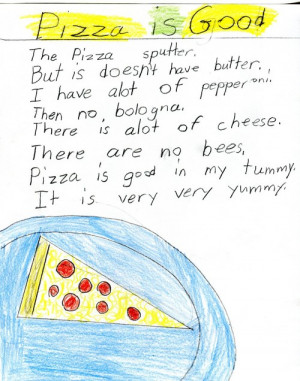 Pizza is Good
The Pizza sputter.
But is doesn't have butter.
I have alot of pepperoni.
Then no, bologna.
There is alot of cheese.
There are no bees,
Pizza is good in my tummy.
It is very very yummy.